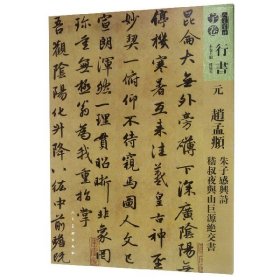 行書
元 趙孟頫
朱子感興詩
嵇叔夜與山巨源絕交書
崑崙大無外旁礴下深廣陰陽無
停機寒暑互來往皇羲古神聖
妙契一俯仰不待窺馬圖人文已
宣朗渾然一理貫昭晰非象罔
珍重無極翁為我重指掌
吾觀陰陽化升降八紘中前瞻既